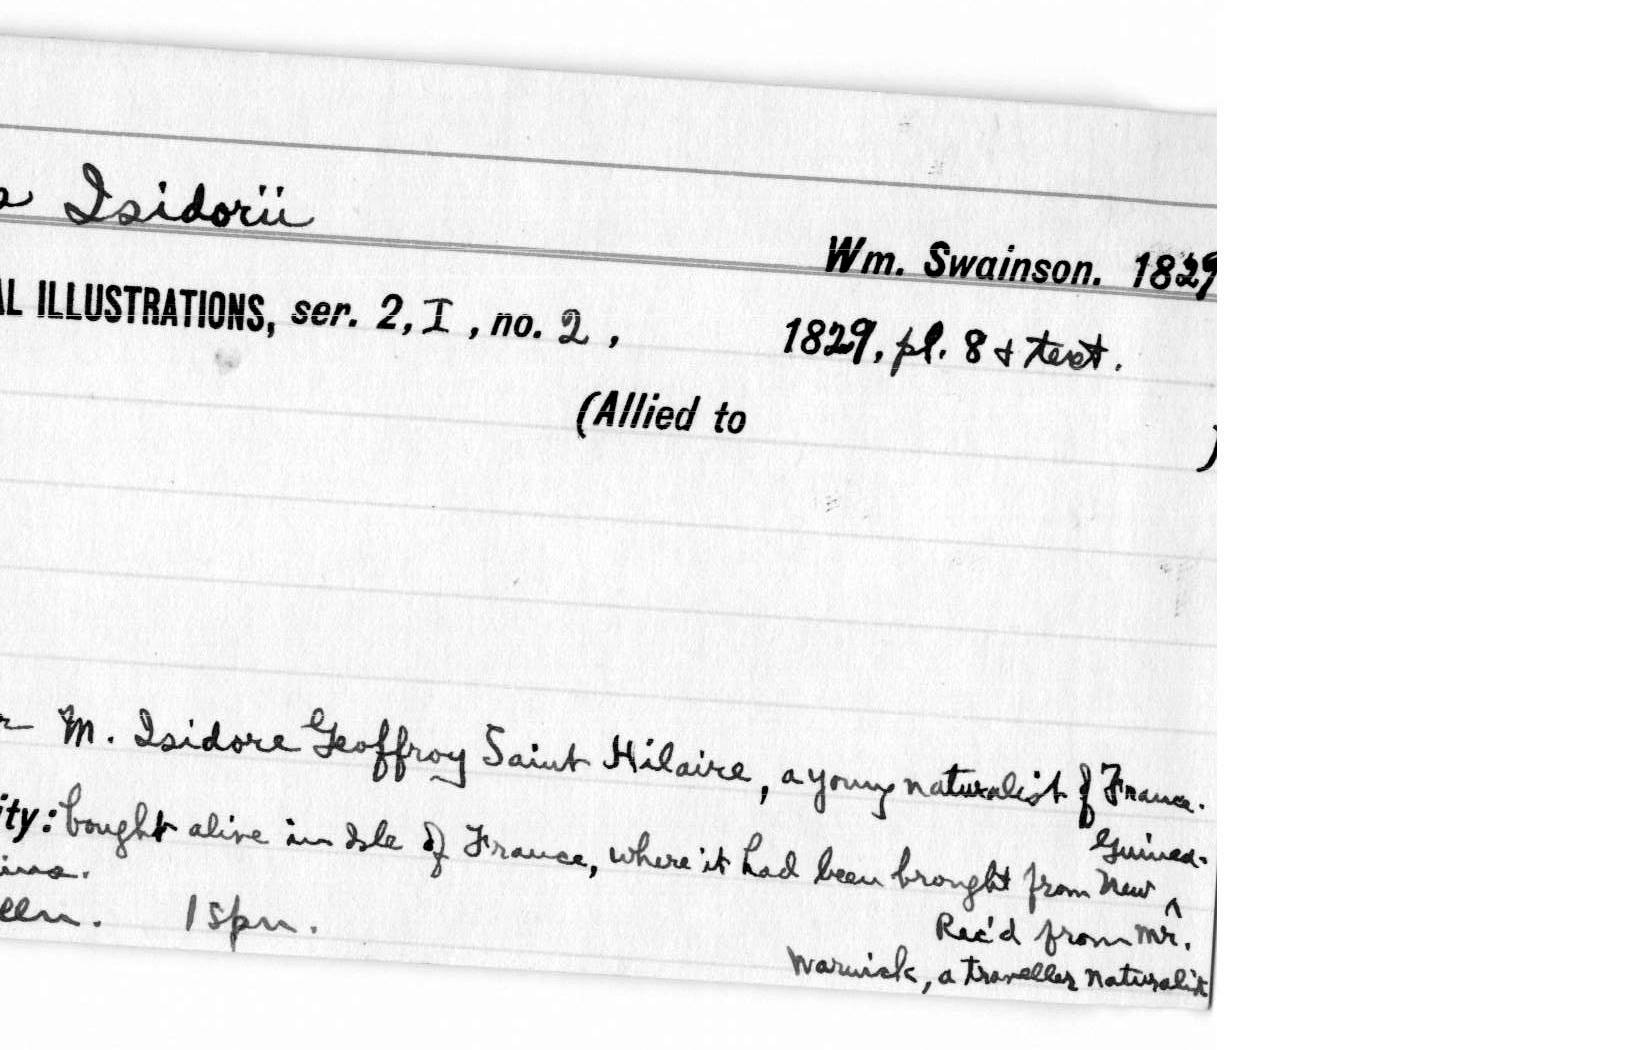 Isidorii
Wm. Swainson. 1829
AL ILLUSTRATIONS, ser. 2, I, no. 2, 1829, pl. 8 & text.
(Allied to )
M. Isidore Geoffroy Saint Hilaire, a young naturalist of France.
ity: bought alive in Isle of France, where it had been brought from New ^ Guinea.
een. 1 spn. Rec'd from Mr.
Warwick, a traveller naturalist